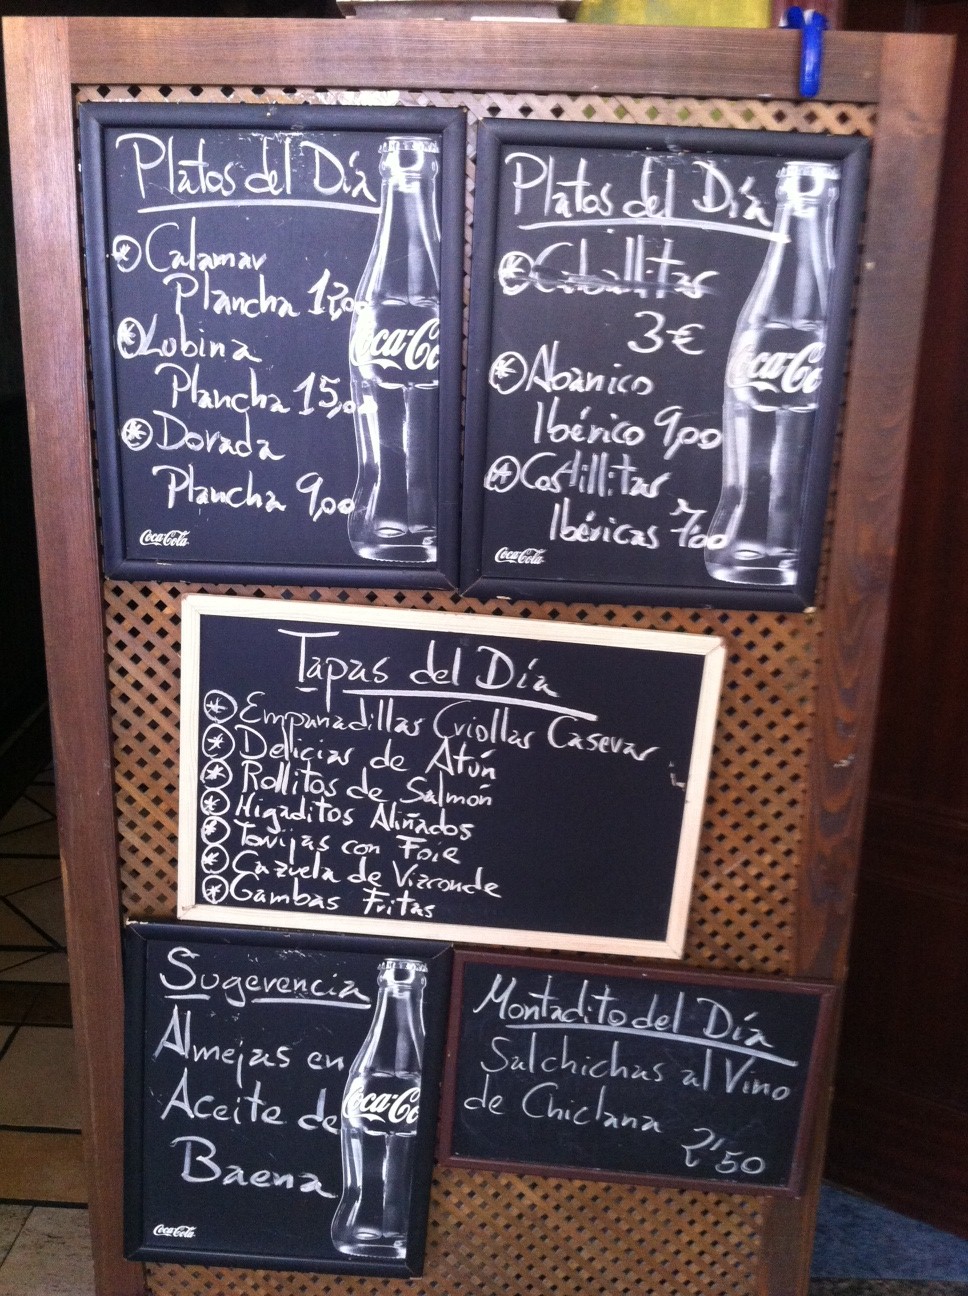 Platos del Día
Calamar
Plancha 12,00
Lubina
Plancha 15,00
Dorada
Plancha 9,00
Coca-Cola
Coca-Co
Platos del Día
Caballitas
3€
Abanico
Ibérico 9,00
Costillitas
Ibéricas 7,00
Coca-Cola
Coca-Co
Tapas del Día
Empanadillas Criollas Caseras
Delicias de Atún
Rollitos de Salmón
Higaditos Aliñados
Torrijas con Foie
Cazuela de Vizconde
Gambas Fritas
Sugerencia
Almejas en
Aceite de
Baena
Coca-Cola
Coca-Co
Montadito del Día
Salchichas al Vino
de Chiclana
2'50